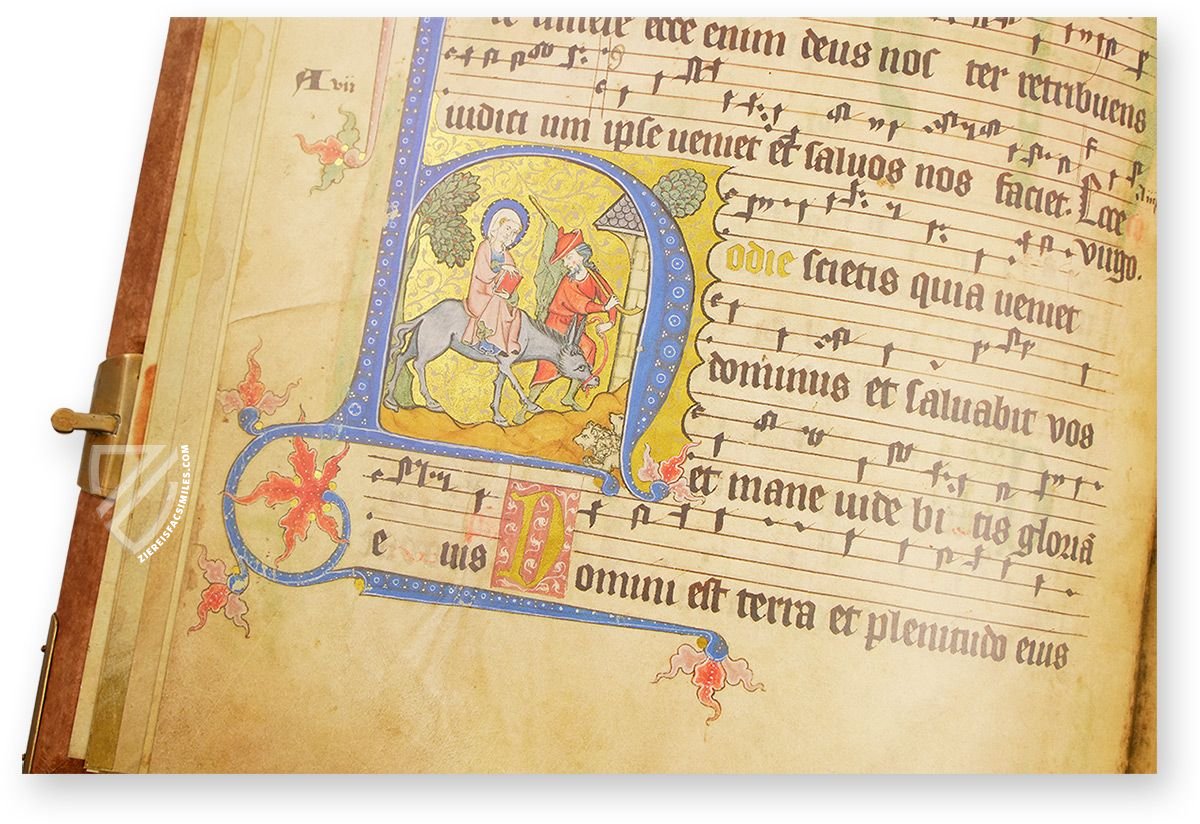 te timere ecce enim deus nos ter retribuens
A vii
iudici um ipse veniet et saluos nos faciet. Ecce
virgo.
Hodie scietis quia ueniet
dominus et saluabit vos
et mane uide bi tis gloriā
e ius Domini est terra et plenitudo eius
ZIEREISFACSIMILES.COM